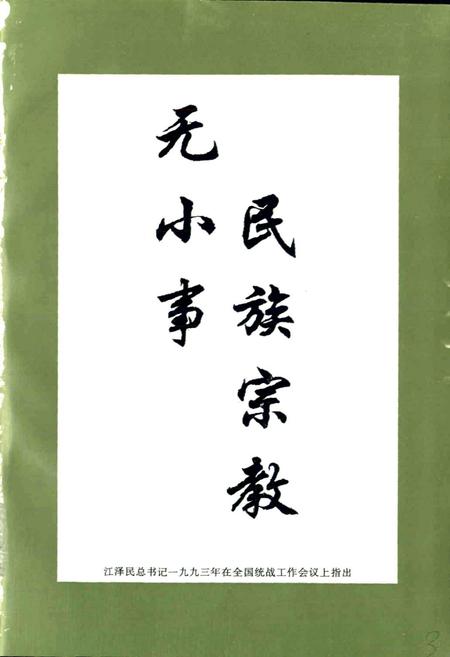 民族宗教
无小事
江泽民总书记一九九三年在全国统战工作会议上指出
3